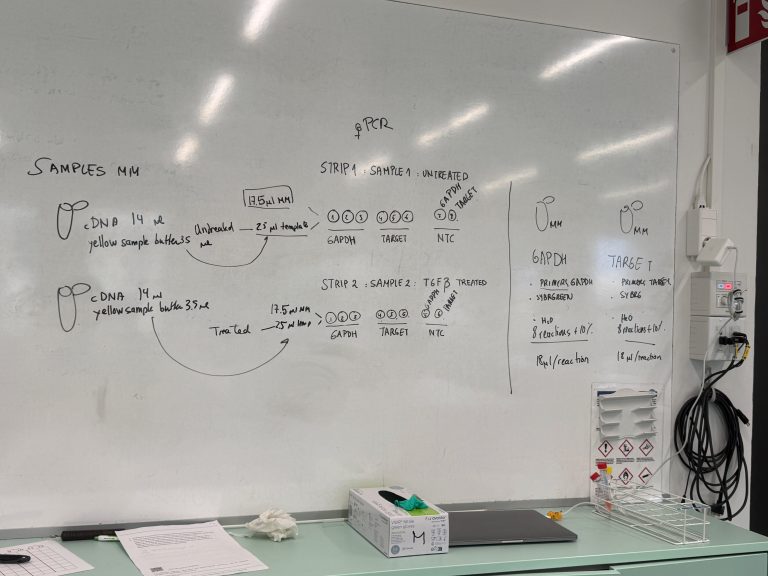 qPCR
SAMPLES MM
cDNA 14 µl
yellow sample buffer 3.5 µl
Untreated
17.5 µl MM
STRIP 1 : SAMPLE 1 : UNTREATED
1 2 3 4 5 6 7 8
GAPDH TARGET NTC
GAPDH
TARGET
cDNA 14 µl
yellow sample buffer 3.5 µl
Treated
17.5 µl MM
STRIP 2 : SAMPLE 2 : TGFβ TREATED
GAPDH TARGET NTC
GAPDH
TARGET
MM
GAPDH
• PRIMERS GAPDH
• SYBRGREEN
• H2O
8 reactions + 10%
18 µl/reaction
MM
TARGET
• PRIMERS TARGET
• SYBRG
• H2O
8 reactions + 10%
18 µl/reaction
M